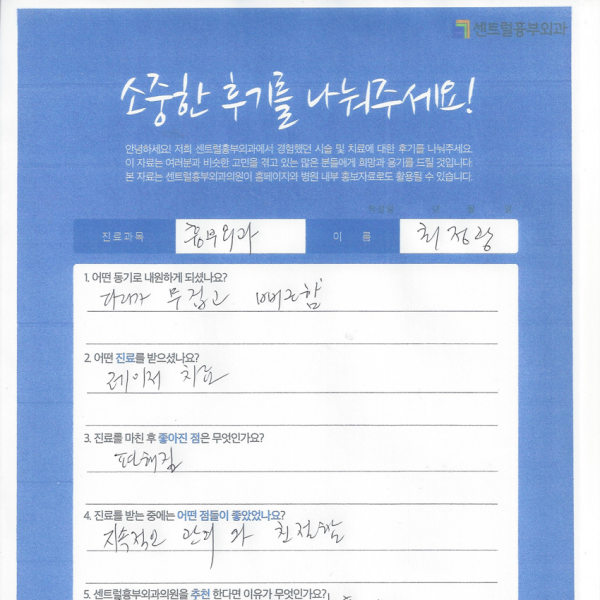 센트럴흉부외과
소중한 후기를 나눠주세요!
안녕하세요! 저희 센트럴흉부외과에서 경험했던 시술 및 치료에 대한 후기를 나눠주세요.
이 자료는 여러분과 비슷한 고민을 겪고 있는 많은 분들에게 희망과 용기를 드릴 것입니다.
본 자료는 센트럴흉부외과의원이 홈페이지와 병원 내부 홍보자료로도 활용될 수 있습니다.
진료과목 흉부외과 이 름 최정광
1. 어떤 동기로 내원하게 되셨나요?
다리가 무겁고 뻐근함
2. 어떤 진료를 받으셨나요?
레이저 치료
3. 진료를 마친 후 좋아진 점은 무엇인가요?
편해짐
4. 진료를 받는 중에는 어떤 점들이 좋았었나요?
지속적인 관리 와 친절함
5. 센트럴흉부외과의원을 추천 한다면 이유가 무엇인가요?